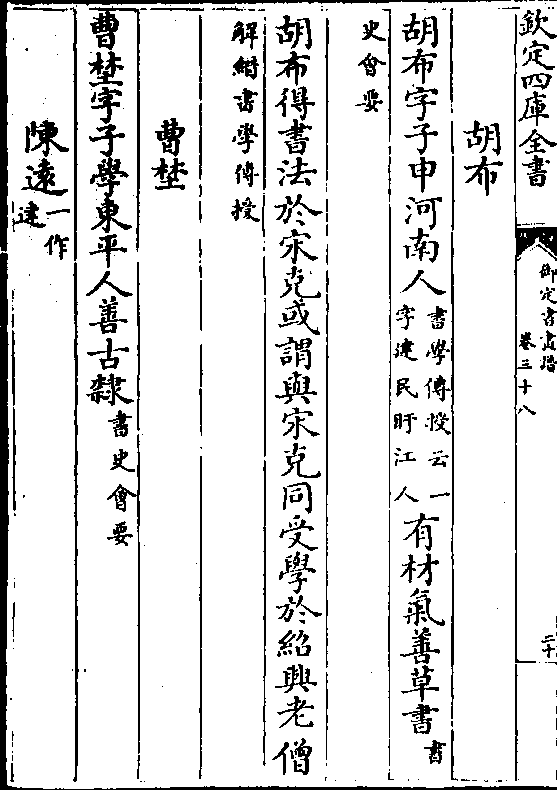 欽定四庫全書
御定書畫譜
卷三十八
二十
胡布
胡布字子申河南人書學傳授云一字建民盱江人有材氣善草書書
史會要
胡布得書法於宋克或謂與宋克同受學於紹興老僧
解縉書學傳授
曹埜
曹埜字子學東平人善古隸書史會要
陳遠一作建